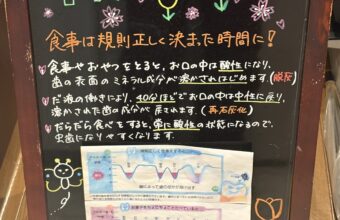 食事は規則正しく決まった時間に！
食事やおやつをとると、お口の中は酸性になり、
歯の表面のミネラル成分が溶かされはじめます。(脱灰)
だ液の働きにより、40分ほどでお口の中は中性に戻り、
溶かされた歯の成分が戻されます。(再石灰化)
だらだら食べをすると、常に酸性の状態になるので、
虫歯になりやすくなります。